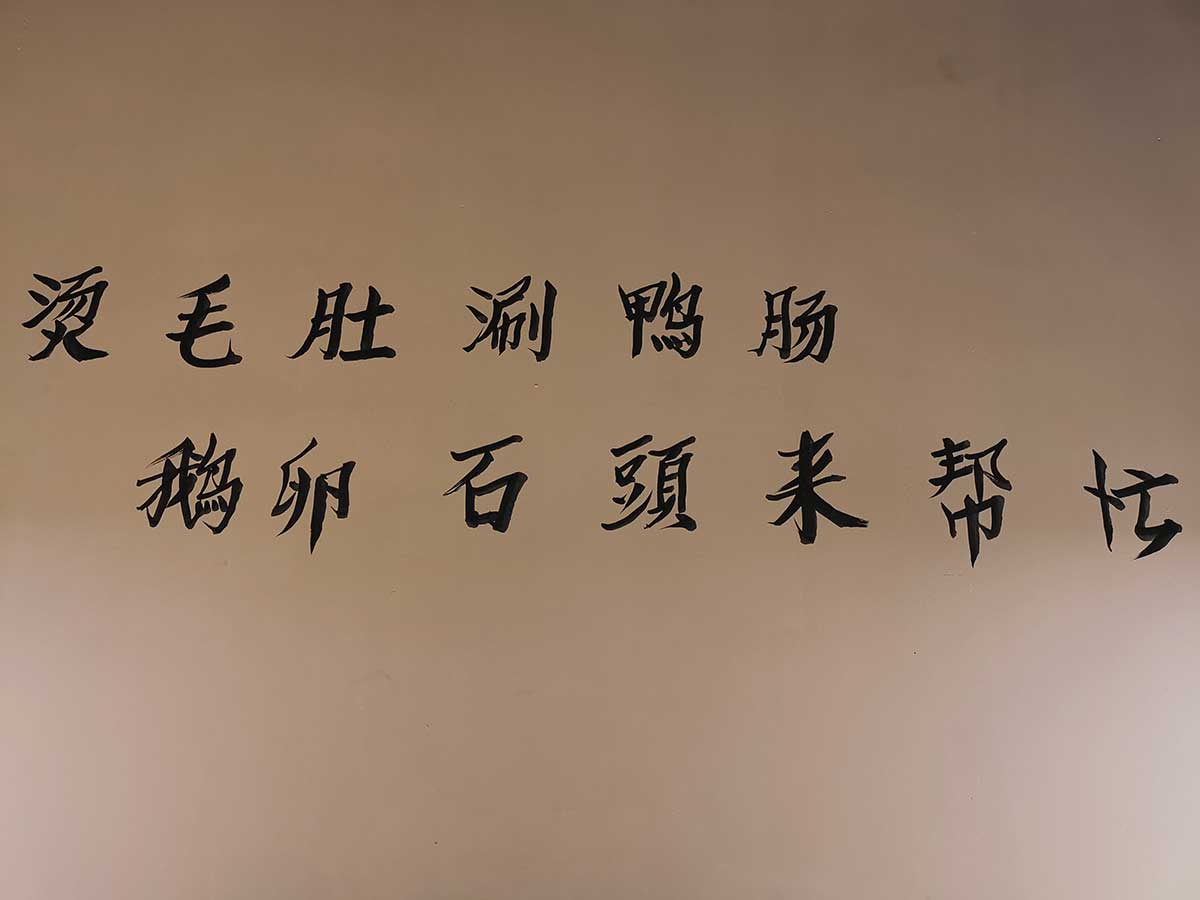 烫毛肚涮鴨肠
鵝卵石頭来帮忙